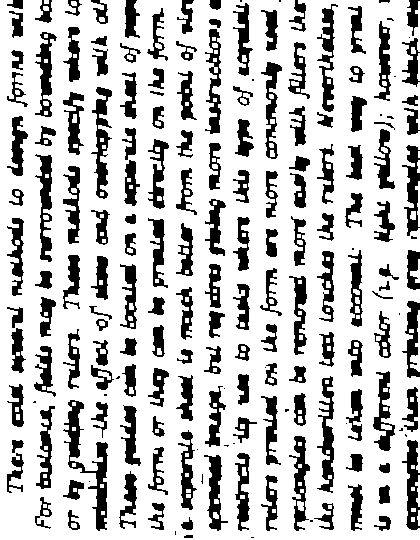 There exist several methods to design forms with
For instance, fields may be surrounded by bounding bo
or by guiding rulers. These methods specify where to
minimize the effect of skew and overlapping with ot
These guides can be located on a separate sheet of pape
the form or they can be printed directly on the form.
a separate sheet is much better from the point of view
scanned image, but requires giving more instructions a
restricts its use to tasks where this type of acquisit
rulers printed on the form are more commonly used
rectangles can be removed more easily with filters tha
the handwritten text touches the rulers. Nevertheless,
must be taken into account: The best way to print
is in a different color (i.e. light yellow); however,
expensive than printing gray rectangles with black-an